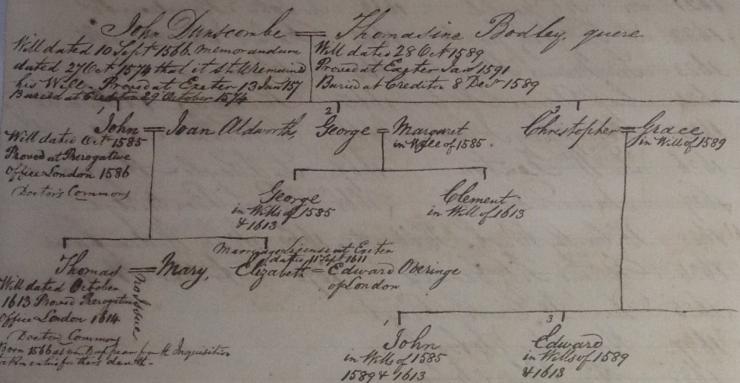 John Dunscombe = Thomasine Bodley, quere
Will dated 10 Sept 1566. memorandum
dated 27 Oct 1574 that it still remained
his Will - Proved at Exeter 13 Jan 157
Buried at Crediton 29 October 1574
Will dated 28 Oct 1589
Proved at Exeter Jan 1591
Buried at Crediton 8 Decr 1589
1
John = Joan Aldworth,
Will dated Oct 1585
Proved at Prerogative
Office London 1586
Doctor's Commons
2
George = Margaret
in Will of 1585.
3
Christopher = Grace
in Will of 1589
George
in Wills of 1585
& 1613
Clement
in Will of 1613
Thomas = Mary,
No issue
Will dated October
1613 Proved Prerogative
Office London 1614
Doctors Commons
Born 1566 as
Inquisition
death -
Marriage License at Exeter
dated 1611
Elizabeth = Edward Oeringe
of London
1
John
in Wills of 1585
1589 & 1613
3
Edward
in Wills of 1589
& 1613